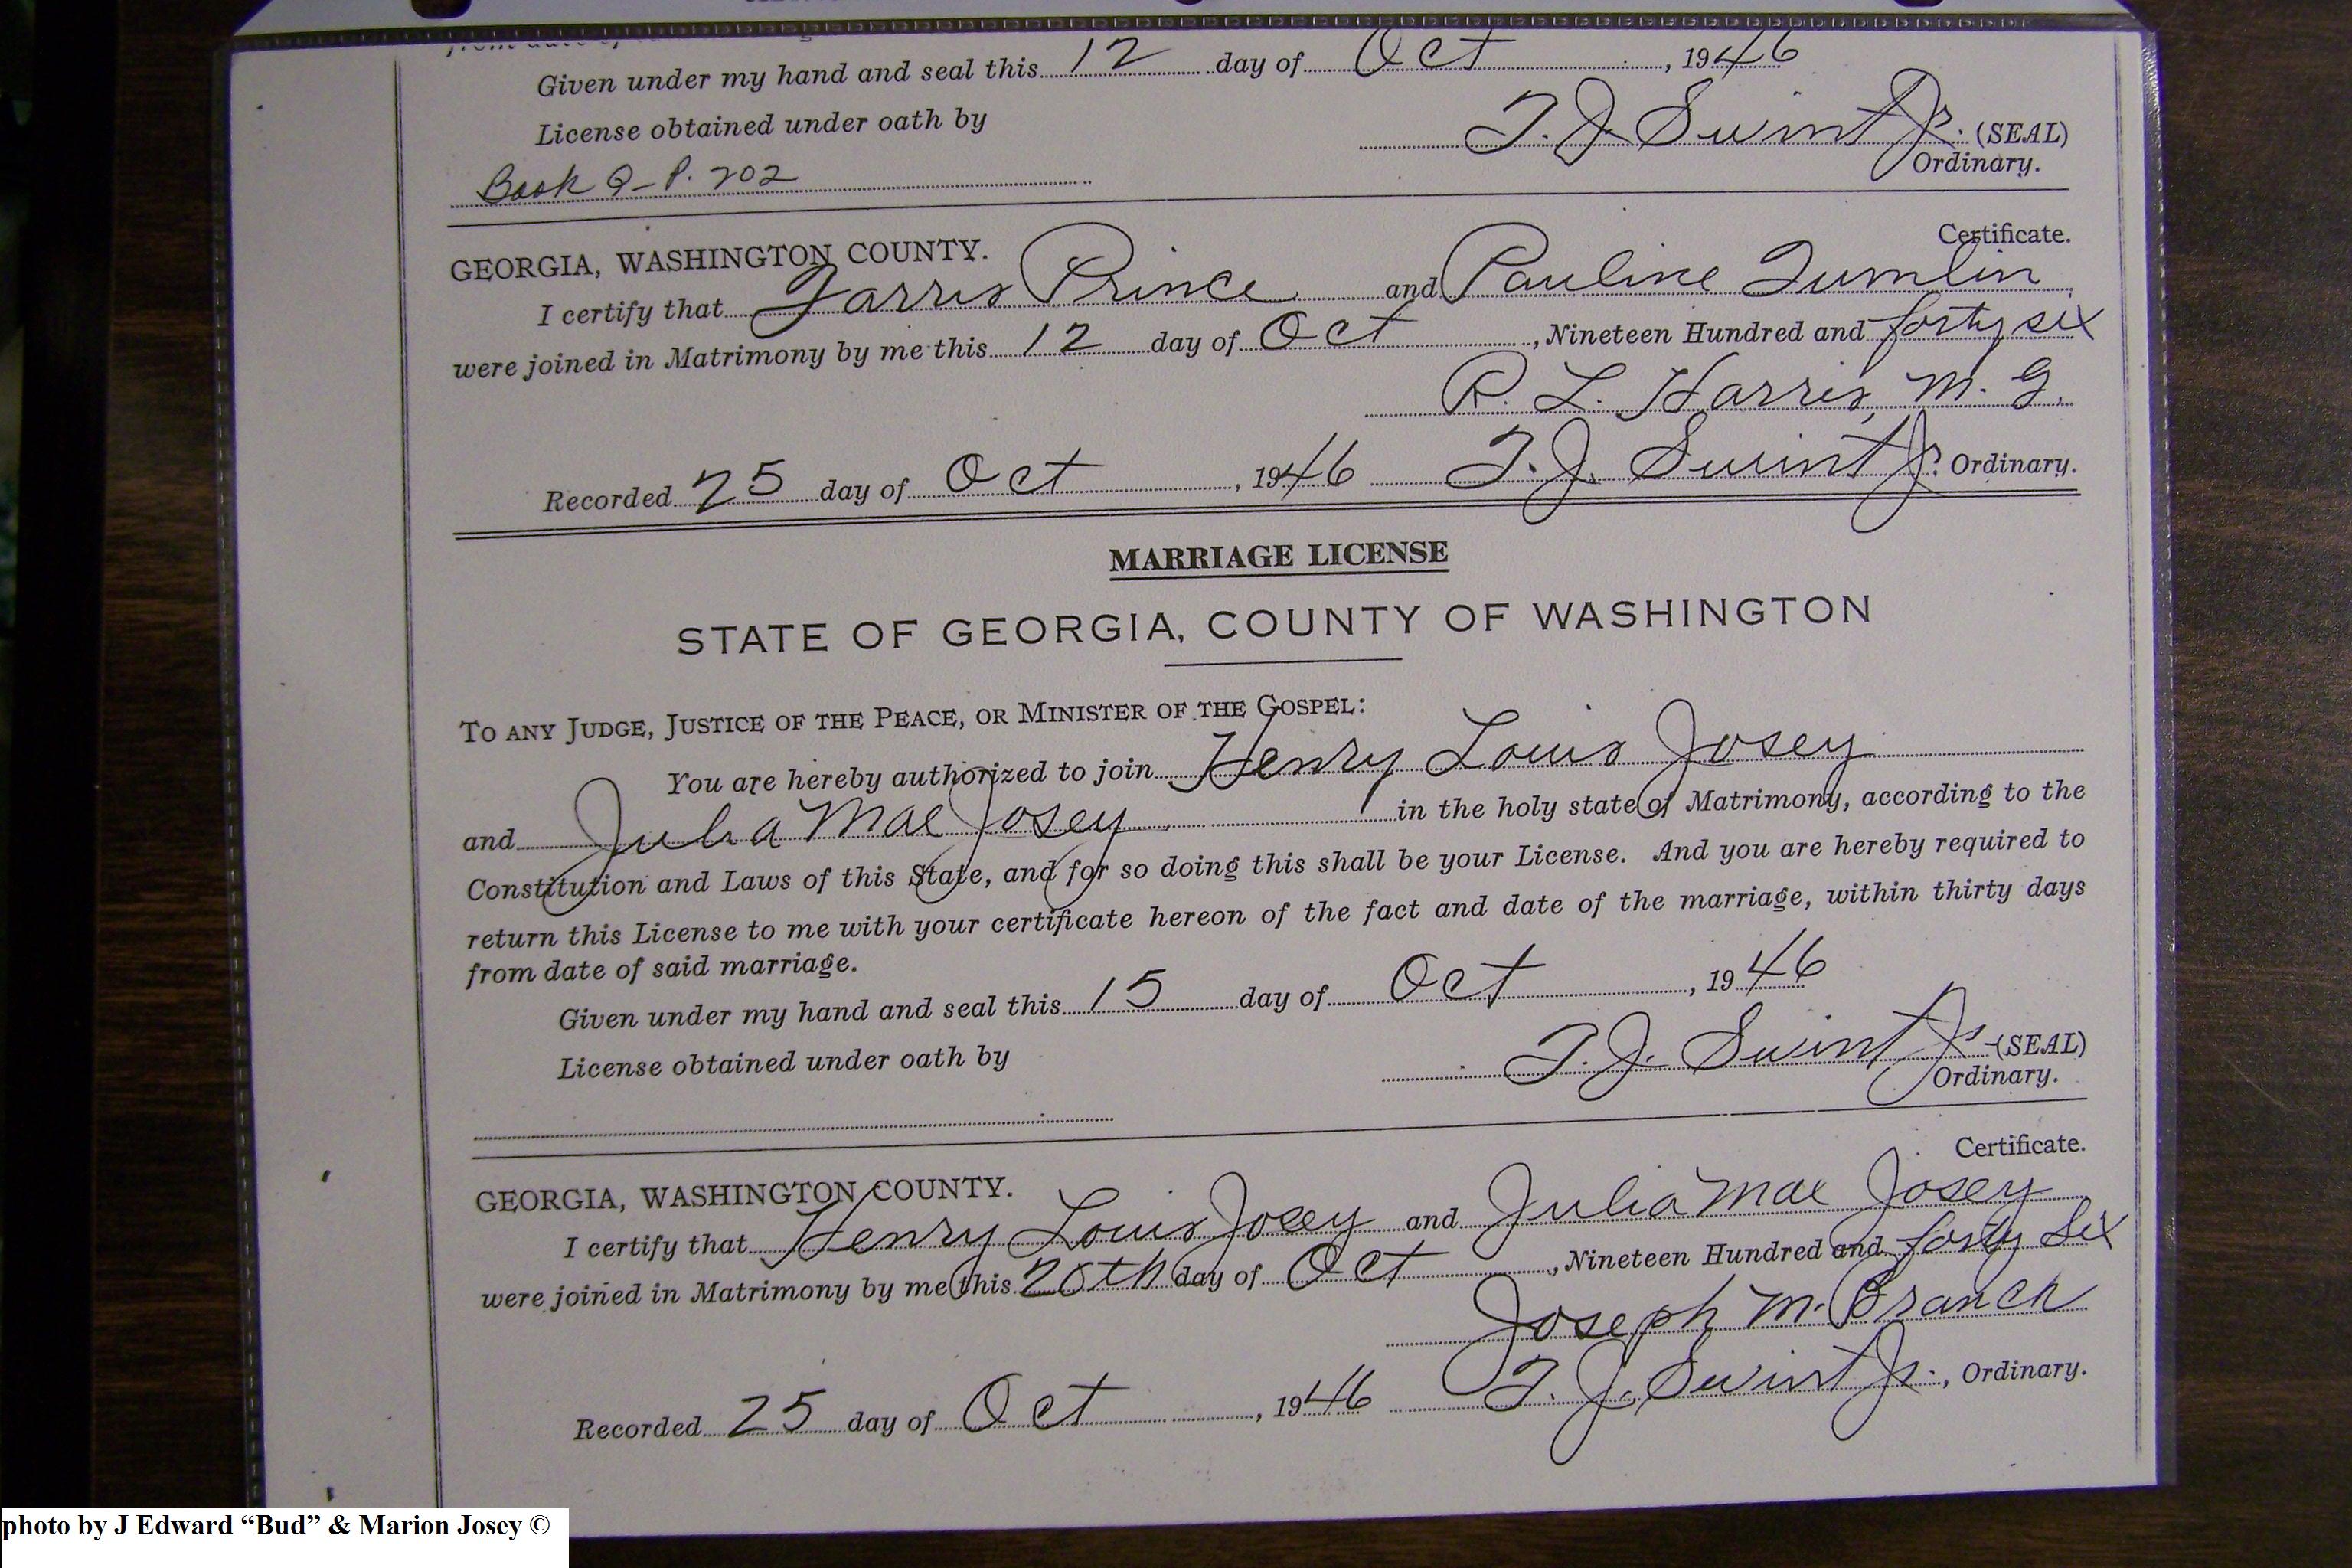 Given under my hand and seal this 12 day of Oct, 1946
License obtained under oath by
T. J. Swint Jr. (SEAL)
Ordinary.
Book Q-P. 202
Certificate.
GEORGIA, WASHINGTON COUNTY.
I certify that Farris Prince and Pauline Tumlin
were joined in Matrimony by me this 12 day of Oct, Nineteen Hundred and forty six
R. L. Harris, M. G.
Recorded 25 day of Oct, 1946 T. J. Swint Jr. Ordinary.
MARRIAGE LICENSE
STATE OF GEORGIA, COUNTY OF WASHINGTON
TO ANY JUDGE, JUSTICE OF THE PEACE, OR MINISTER OF THE GOSPEL:
You are hereby authorized to join Henry Louis Josey
and Julia Mae Josey in the holy state of Matrimony, according to the
Constitution and Laws of this State, and for so doing this shall be your License. And you are hereby required to
return this License to me with your certificate hereon of the fact and date of the marriage, within thirty days
from date of said marriage.
Given under my hand and seal this 15 day of Oct, 1946
License obtained under oath by
T. J. Swint Jr. (SEAL)
Ordinary.
Certificate.
GEORGIA, WASHINGTON COUNTY.
I certify that Henry Louis Josey and Julia Mae Josey
were joined in Matrimony by me this 20th day of Oct, Nineteen Hundred and forty Six
Joseph M. Branch
Recorded 25 day of Oct, 1946 T. J. Swint Jr., Ordinary.
photo by J Edward “Bud” & Marion Josey ©